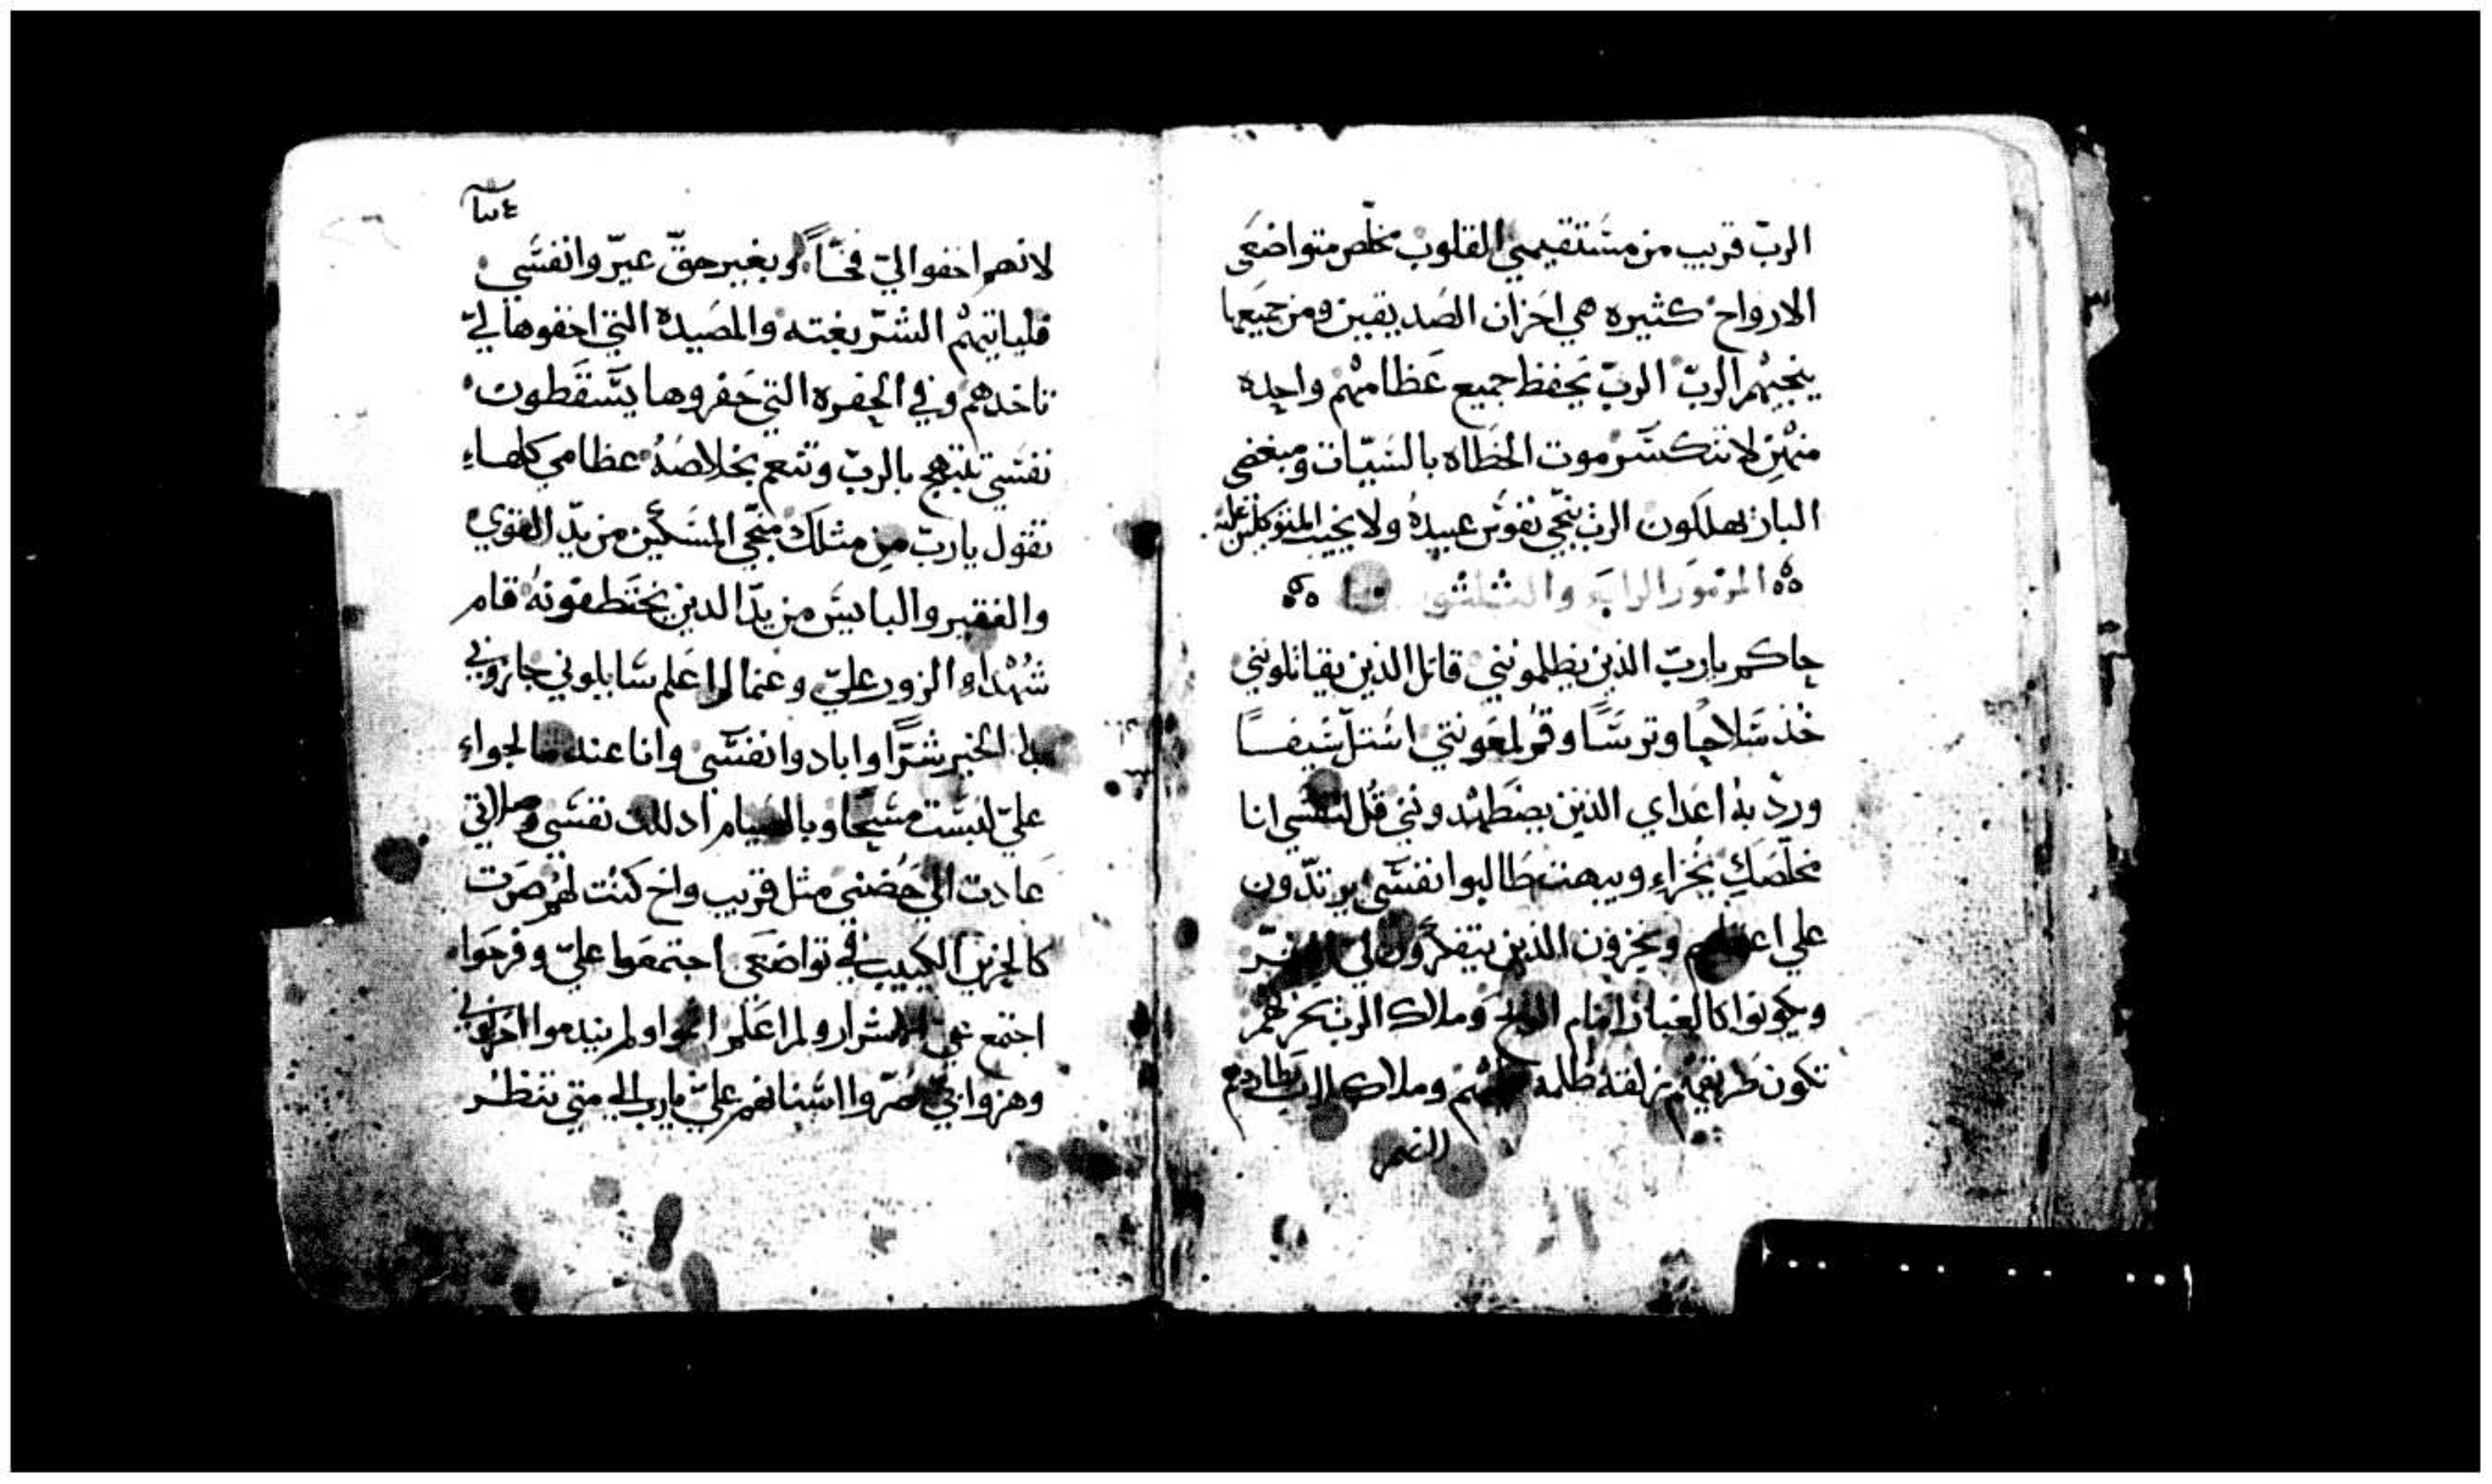 الربّ قريب من مستقيمي القلوب مخلّص متواضعى
الارواح كثيره هي احزان الصديقين ومن جميعها
ينجيهم الربّ الربّ يحفظ جميع عظامهم واحده
منهن لا تنكسر موت الخطاه بالسيّات ومبغضى
البار يهلكون الرب ينجّي نفوس عبيده ولا يخيب المتوكلين عليه
المزمور الرابع والثلثون
حاكم يا ربّ الذين يظلمونني قاتل الذين يقاتلونني
خذ سلاحًا وترسًا وقم لمعونتي استلّ سيفًا
وردّ به اعداي الذين يضطهدونني قل لنفسي انا
مخلّصك يخزاء ويبهت طالبوا نفسي يرتدّون
علي ويخزون الذين يتفكرون لي الشرّ
ويكونوا كالغبار امام الريح وملاك الرب يخزيهم
تكون طريقهم زلقة ظلمة وملاك الرب يطاردهم
لانهم
لانهم اخفوا اليّ فخّاً وبغير حقّ عيّروا نفسي
فلياتيهم الشرّ بغته والمصيدة التي اخفوها لي
تاخدهم وفي الحفره التي حفروها يسقطون
نفسي تبتهج بالربّ وتنعم بخلاصه عظامي كلهاء
تقول يا ربّ من مثلك منجّي المسكين من يدّ القوي
والفقير والبايس من يدّ الدين يختطفونه قام
شهداء الزور عليّ وعمّا لم اعلم سايلوني جازوني
بدل الخير شرّا وابادوا نفسي وانا عند ما لجواء
عليّ لبست مسحًا وبالصيام ادللت نفسي وصلاتي
عادت الي حضني مثل قريب واخ كنت لهم صرت
كالحزين الكييب في تواضعى اجتمعوا عليّ وفرحوا
اجتمع عليّ الاشرار ولم اعلم ولم يندموا احزنوني
وهزوا بي صرّوا اسنانهم عليّ يا رب الي متي تنظر